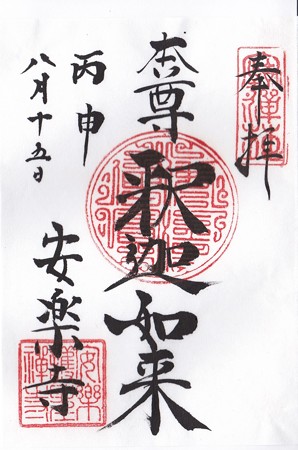 奉拝
本尊
釈迦如来
丙申
八月十五日
安楽寺